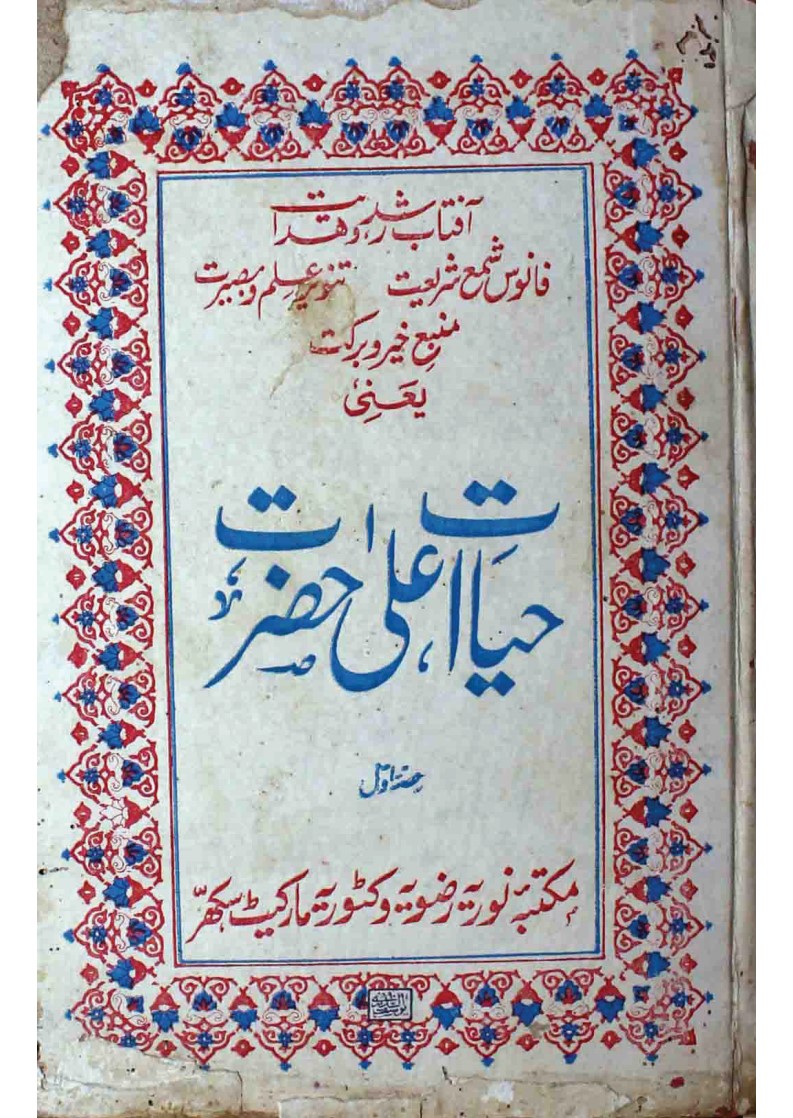 آفتاب رشد و ہدایت
فانوس شمع شریعت تنویر علم و بصیرت
منبع خیر و برکت
یعنی
حیات اعلیٰ حضرت
حصہ اول
مکتبہ نوریہ رضویہ وکٹوریہ مارکیٹ سکھر